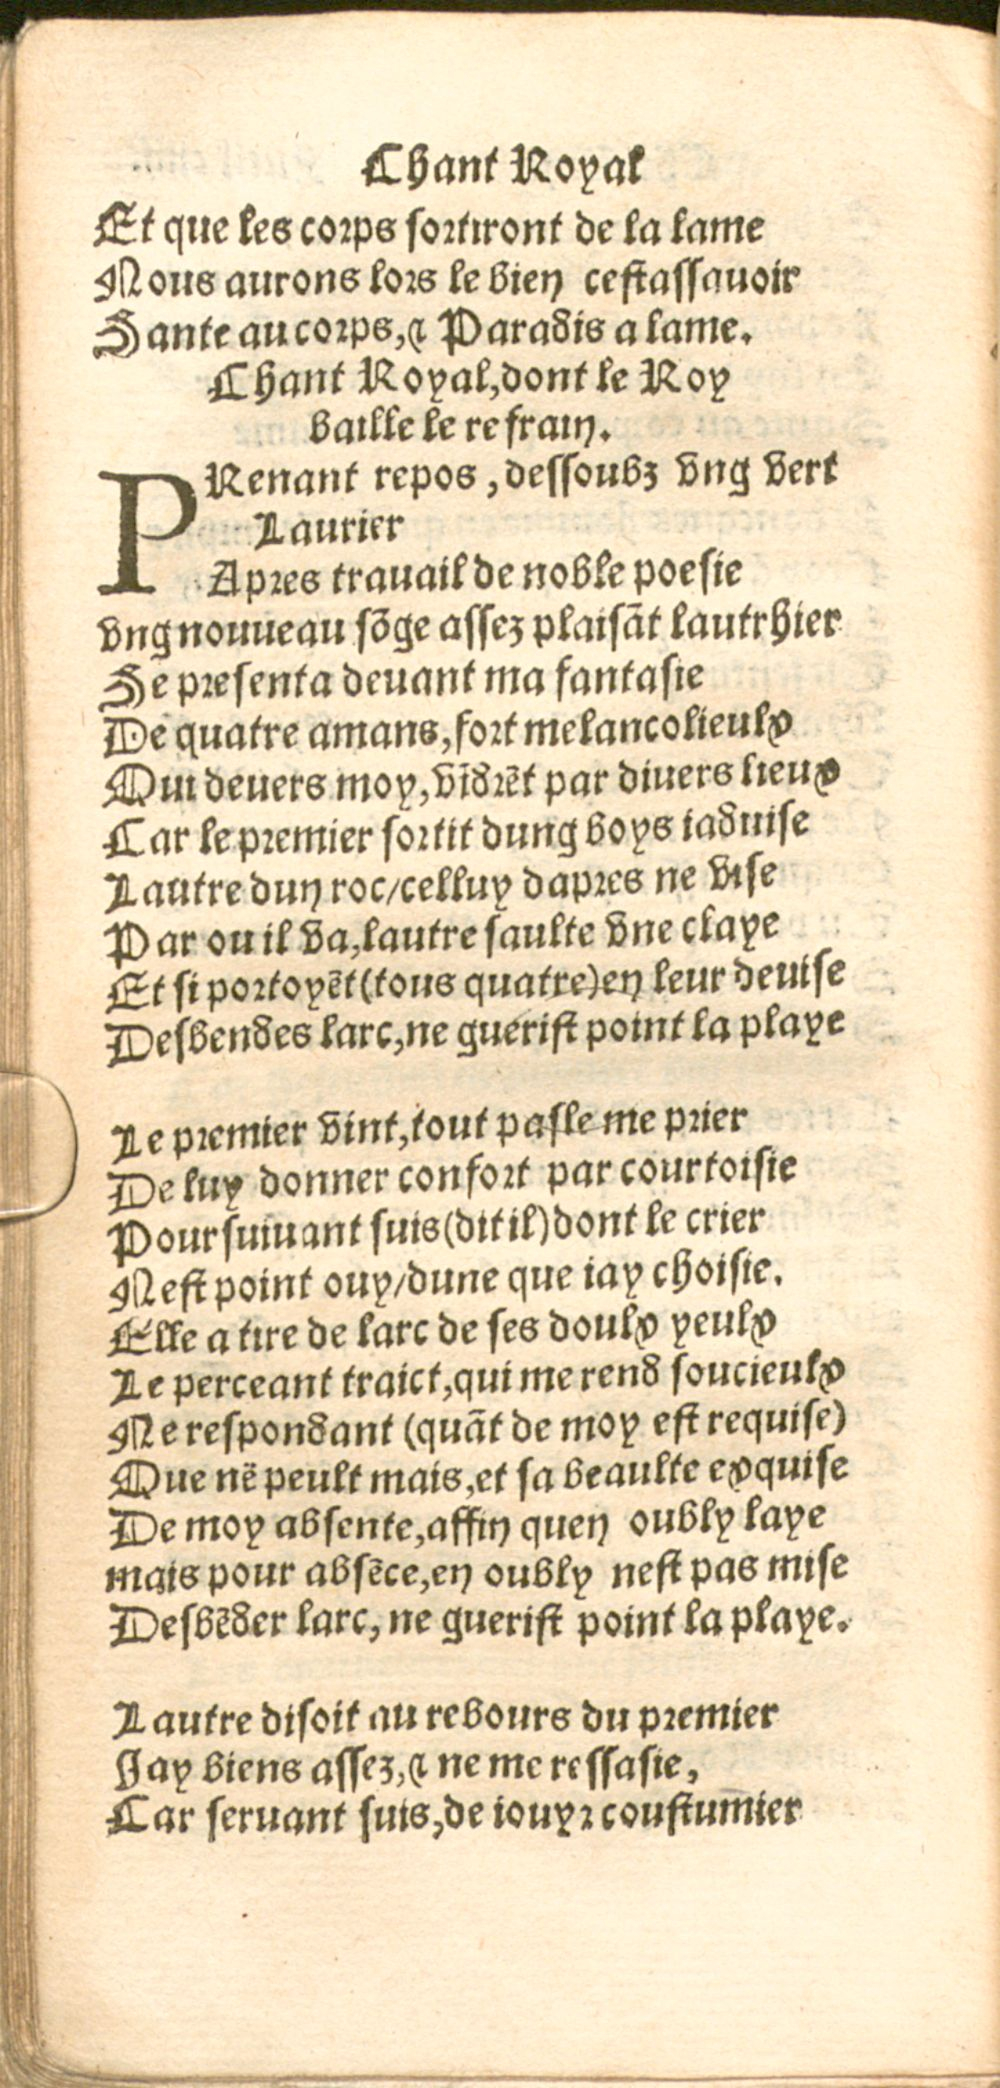 Chant Royal
Et que les corps sortiront de la lame
Nous aurons lors le bien cestassauoir
Sante au corps, & Paradis a lame.
Chant Royal, dont le Roy
baille le refrain.
PRenant repos, dessoubz vng vert
Laurier
Apres trauail de noble poesie
vng nouueau sõge assez plaisãt lautrhier
Se presenta deuant ma fantasie
De quatre amans, fort melancolieulx
Qui deuers moy, vĩdrẽt par diuers lieux
Car le premier sortit dung boys iaduise
Lautre dun roc/celluy dapres ne vise
Par ou il va, lautre saulte vne claye
Et si portoyẽt (tous quatre) en leur deuise
Desbendes larc, ne guerist point la playe

Le premier vint, tout pasle me prier
De luy donner confort par courtoisie
Poursuiuant suis (dit il) dont le crier
Nest point ouy/dune que iay choisie.
Elle a tire de larc de ses doulx yeulx
Le perceant traict, qui me rend soucieulx
Ne respondant (quãt de moy est requise)
Que nẽ peult mais, et sa beaulte exquise
De moy absente, affin quen oubly laye
mais pour absẽce, en oubly nest pas mise
Desbẽder larc, ne guerist point la playe.

Lautre disoit au rebours du premier
Jay biens assez, & ne me ressasie,
Car seruant suis, de iouyr coustumier